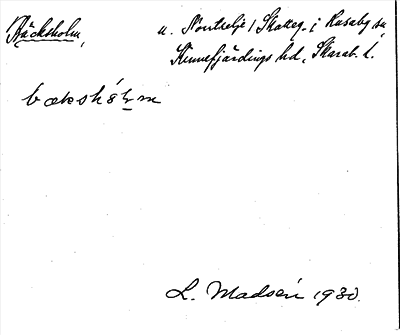 Bäcksholm, u. Norrtelje / Skatteg. i Husaby sn,
Kinnefjärdings hd, Skarab. l.
bækshólm
L. Madsén 1930.